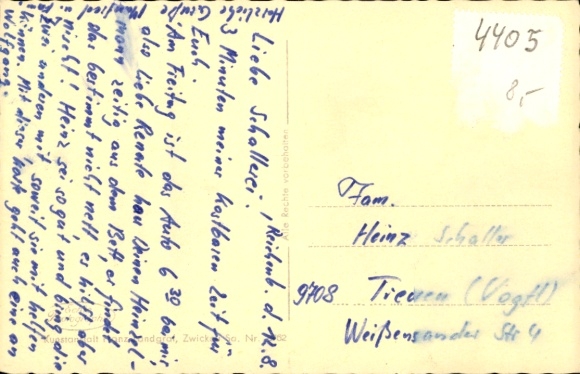 Liebe Schallerei! Reichenb. d. 14.8.
3 Minuten meiner kostbaren Zeit für
Euch
"Am Freitag ist das Auto 6 30 bei mir,
also liebe Renate hau Deinen Heinzel-
mann zeitig aus dem Bett, er findet
das bestimmt nicht nett, es hilft aber
nischt! Heinz sei so gut und bring die
anderen mit soweit sie mit helfen
können. Mit dieser Karte geht auch eine an
Wolfgang.
Herzliche Grüße Manfred
Alle Rechte vorbehalten
4405
8,-
Fam.
Heinz Schaller
9708 Treuen (Vogtl)
Weißensander Str 4
Kunstanstalt Landgraf, Zwickau Sa. Nr.